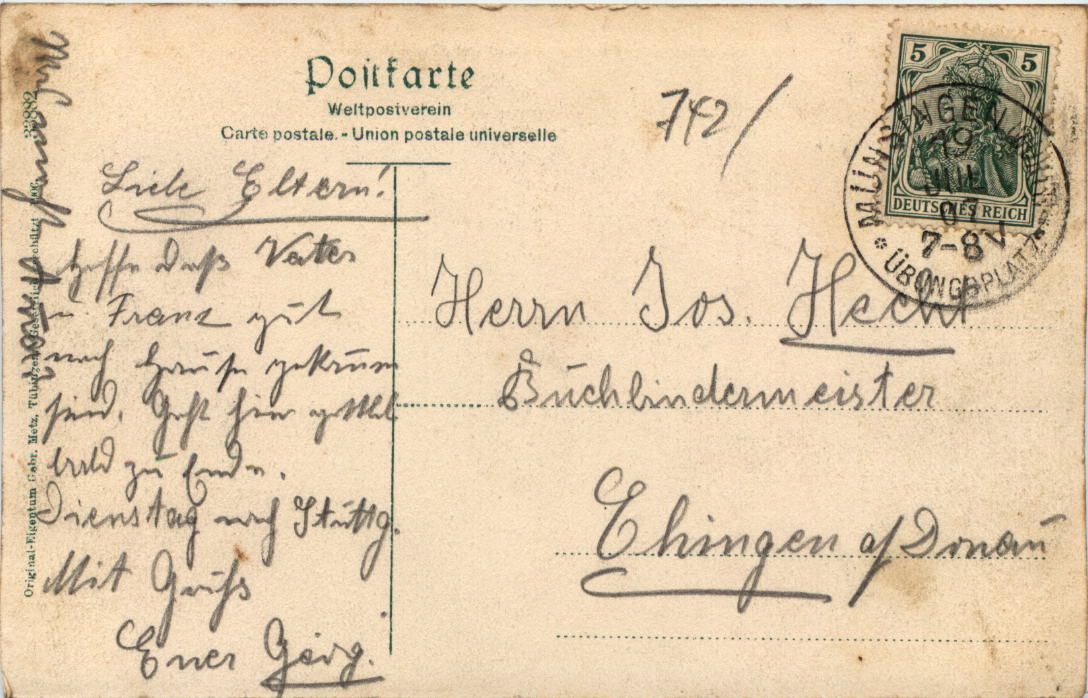 Postkarte
Weltpostverein
Carte postale. - Union postale universelle
742/
5 5
DEUTSCHES REICH
MÜNSINGEN
19
JUL
7-8 V
* ÜBUNGSPLATZ
Liebe Eltern!
Hoffe daß Vater
u Franz gut
nach Hause gekomm
sind. Geht hier
bald zu Ende.
Dienstag nach Stuttg.
Mit Gruß
Euer Georg.
Herrn Jos. Hecht
Buchbindermeister
Ehingen a/Donau
Original-Eigentum Gebr. Metz, Tübingen
33882